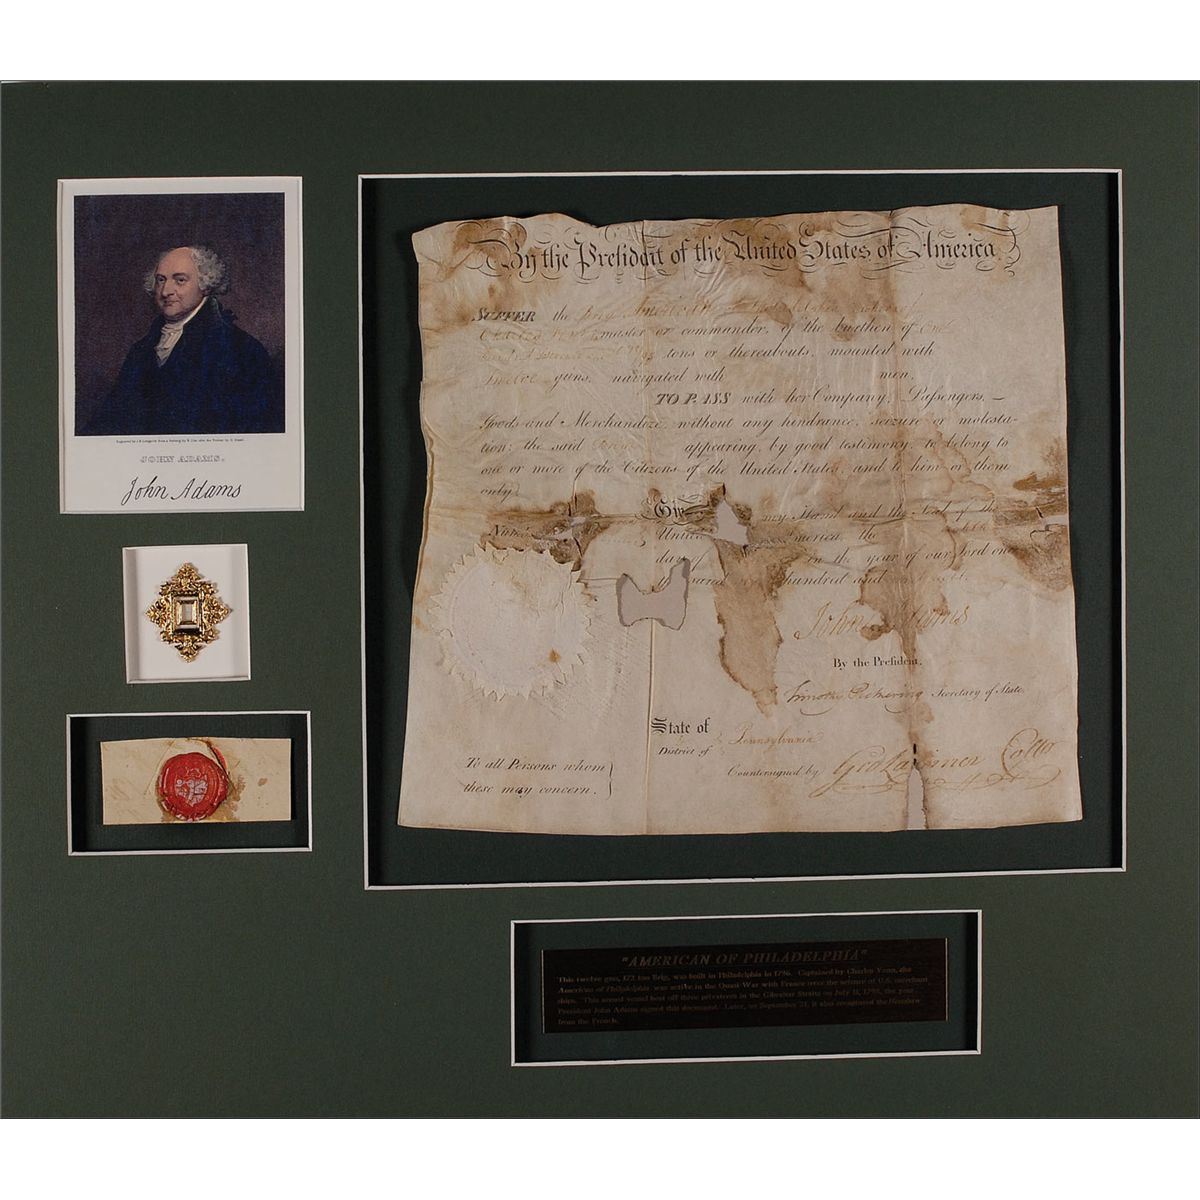 JOHN ADAMS.
John Adams
By the President of the United States of America
SUFFER the Brig American of Philadelphia
master or commander, of the burthen of One
tons or thereabouts, mounted with
Twelve guns, navigated with men,
TO PASS with her Company, Passengers, –
Goods and Merchandize, without any hindrance, seizure or molesta-
tion; the said Brig appearing by good testimony, to belong to
one or more of the Citizens of the United States, and to him or them
only.
Giv my Hand and the Seal of the
United America, the
day of in the year of our Lord one
hundred and
John Adams
By the President,
Timothy Pickering Secretary of State
State of
District of Pennsylvania
Countersigned by
To all Persons whom
these may concern.
"AMERICAN OF PHILADELPHIA"
This twelve gun, 172 ton Brig, was built in Philadelphia in 1796. Captained by Charles the
American of Philadelphia was active in the Quasi-War with France over the seizure of U.S. merchant
ships. This armed vessel beat off three privateers in the Gibraltar Straits on July 11, 1799, the year
President John Adams signed this document. Later, on September 21, it also recaptured the
from the French.